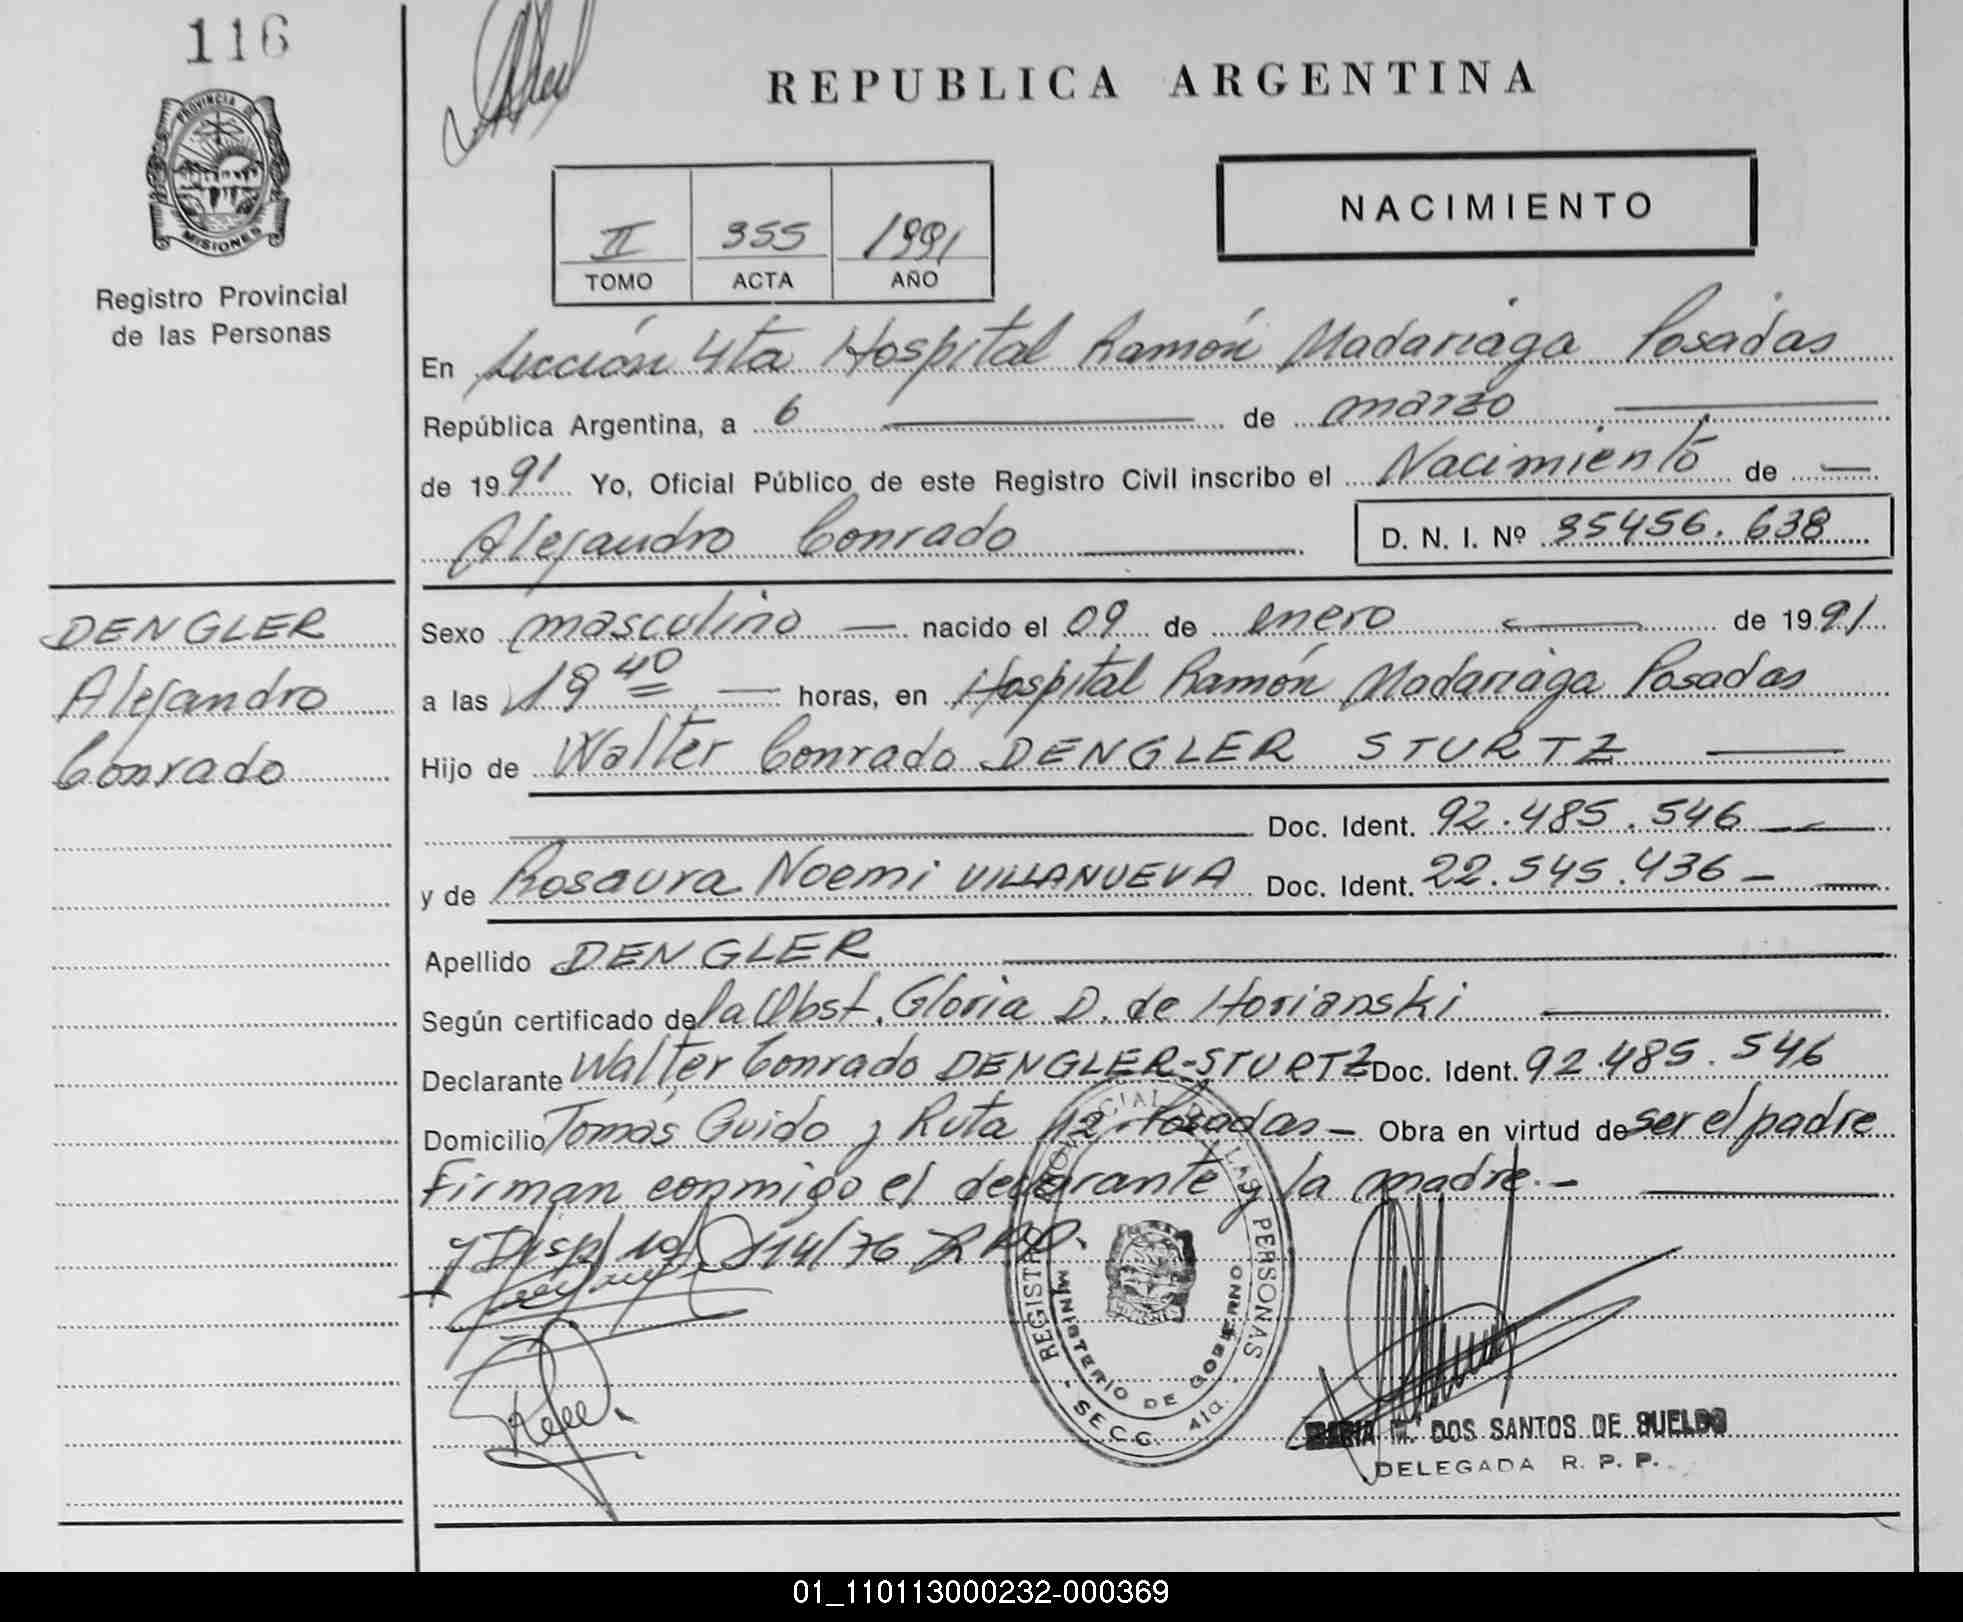 116
PROVINCIA DE
MISIONES
Registro Provincial
de las Personas
REPUBLICA ARGENTINA
II 355 1991
TOMO ACTA AÑO
NACIMIENTO
En Sección 4ta Hospital Ramón Madariaga Posadas
República Argentina, a 6 de marzo
de 1991 Yo, Oficial Público de este Registro Civil inscribo el Nacimiento de
Alejandro Conrado
D. N. I. Nº 35456.638
DENGLER
Alejandro
Conrado
Sexo masculino nacido el 09 de enero de 1991
a las 18 40 horas, en Hospital Ramón Madariaga Posadas
Hijo de Walter Conrado DENGLER STURTZ
Doc. Ident. 92.485.546
y de Rosaura Noemi VILLANUEVA Doc. Ident. 22.545.436
Apellido DENGLER
Según certificado de la Obst. Gloria D. de Horianski
Declarante Walter Conrado DENGLER-STURTZ Doc. Ident. 92.485.546
Domicilio Tomás Guido y Ruta 12 Posadas Obra en virtud de ser el padre
Firman conmigo el declarante y la madre.
y Disp/ 114/76
REGISTRO PROVINCIAL DE LAS PERSONAS
MINISTERIO DE GOBIERNO
SECC. 4ta.
MARIA M. DOS SANTOS DE SUELDO
DELEGADA R. P. P.
01_110113000232-000369